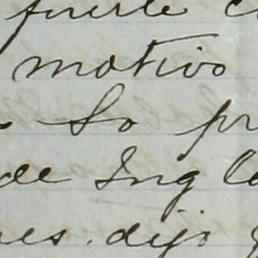 fuerte
motivo
So pr
de Ingl
es. dijo